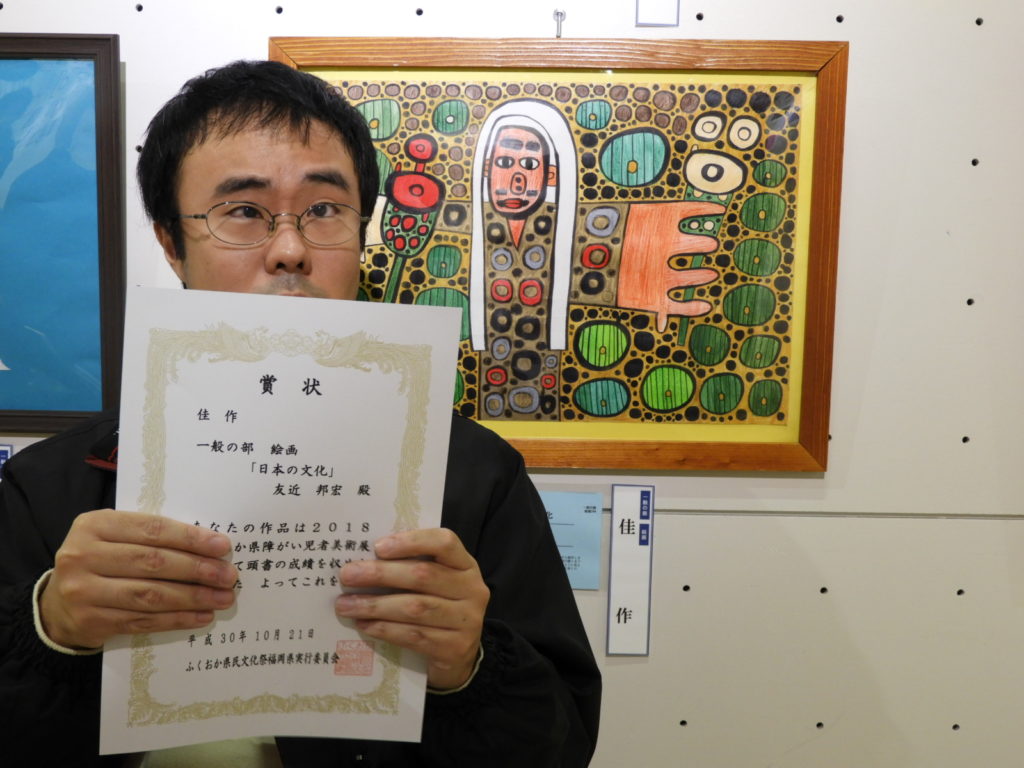 賞状
佳作
一般の部 絵画
「日本の文化」
友近 邦宏 殿
なたの作品は2018
か県障がい児者美術展
て頭書の成績を収め
た よってこれを
平成30年10月21日
ふくおか県民文化祭福岡県実行委員会
一般の部 絵画
佳作